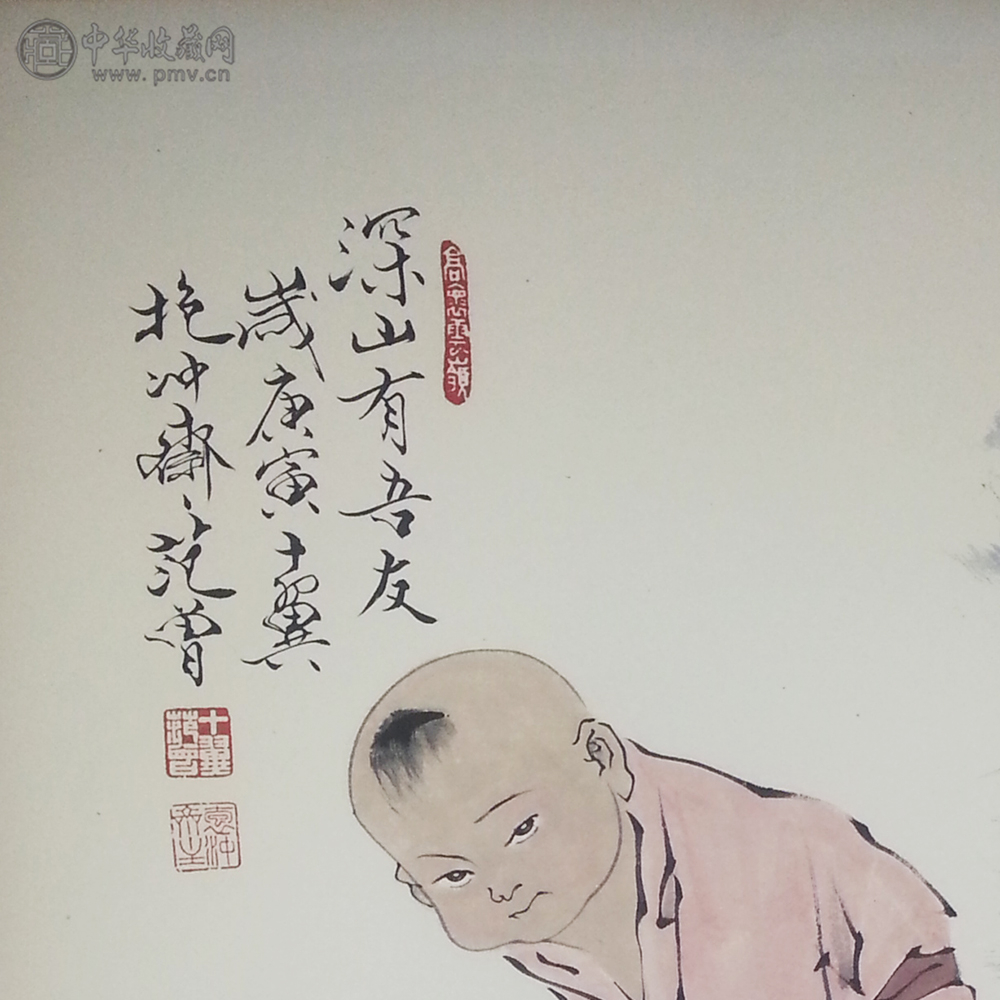 中华收藏网
www.pmv.cn
深山有吾友
歲庚寅十翼
抱冲齋主范曾
十翼范曾